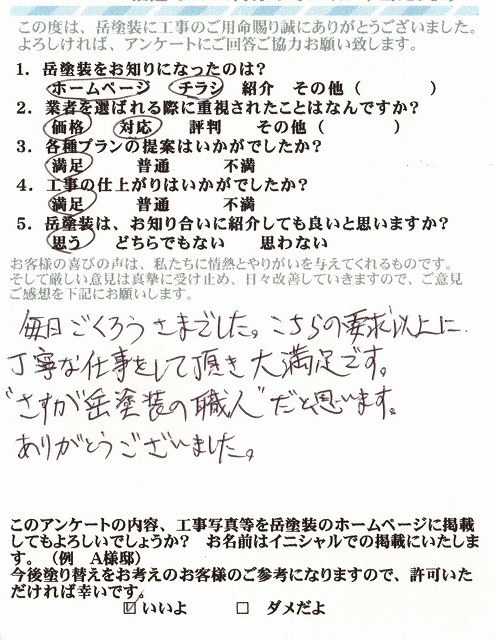 この度は、岳塗装に工事のご用命賜り誠にありがとうございました。
よろしければ、アンケートにご回答ご協力お願い致します。
1．岳塗装をお知りになったのは？
ホームページ　チラシ　紹介　その他（　　　　）
2．業者を選ばれる際に重視されたことはなんですか？
価格　対応　評判　その他（　　　　）
3．各種プランの提案はいかがでしたか？
満足　普通　不満
4．工事の仕上がりはいかがでしたか？
満足　普通　不満
5．岳塗装は、お知り合いに紹介しても良いと思いますか？
思う　どちらでもない　思わない
お客様の喜びの声は、私たちに情熱とやりがいを与えてくれるものです。
そして厳しい意見は真摯に受け止め、日々改善していきますので、ご意見
ご感想を下記にお願いします。
毎日ごくろうさまでした。こちらの要求以上に
丁寧な仕事をして頂き大満足です。
"さすが岳塗装の職人"だと思います。
ありがとうございました。
このアンケートの内容、工事写真等を岳塗装のホームページに掲載
してもよろしいでしょうか？　お名前はイニシャルでの掲載にいたしま
す。（例　A様邸）
今後塗り替えをお考えのお客様のご参考になりますので、許可いた
だければ幸いです。
☑ いいよ　□ ダメだよ